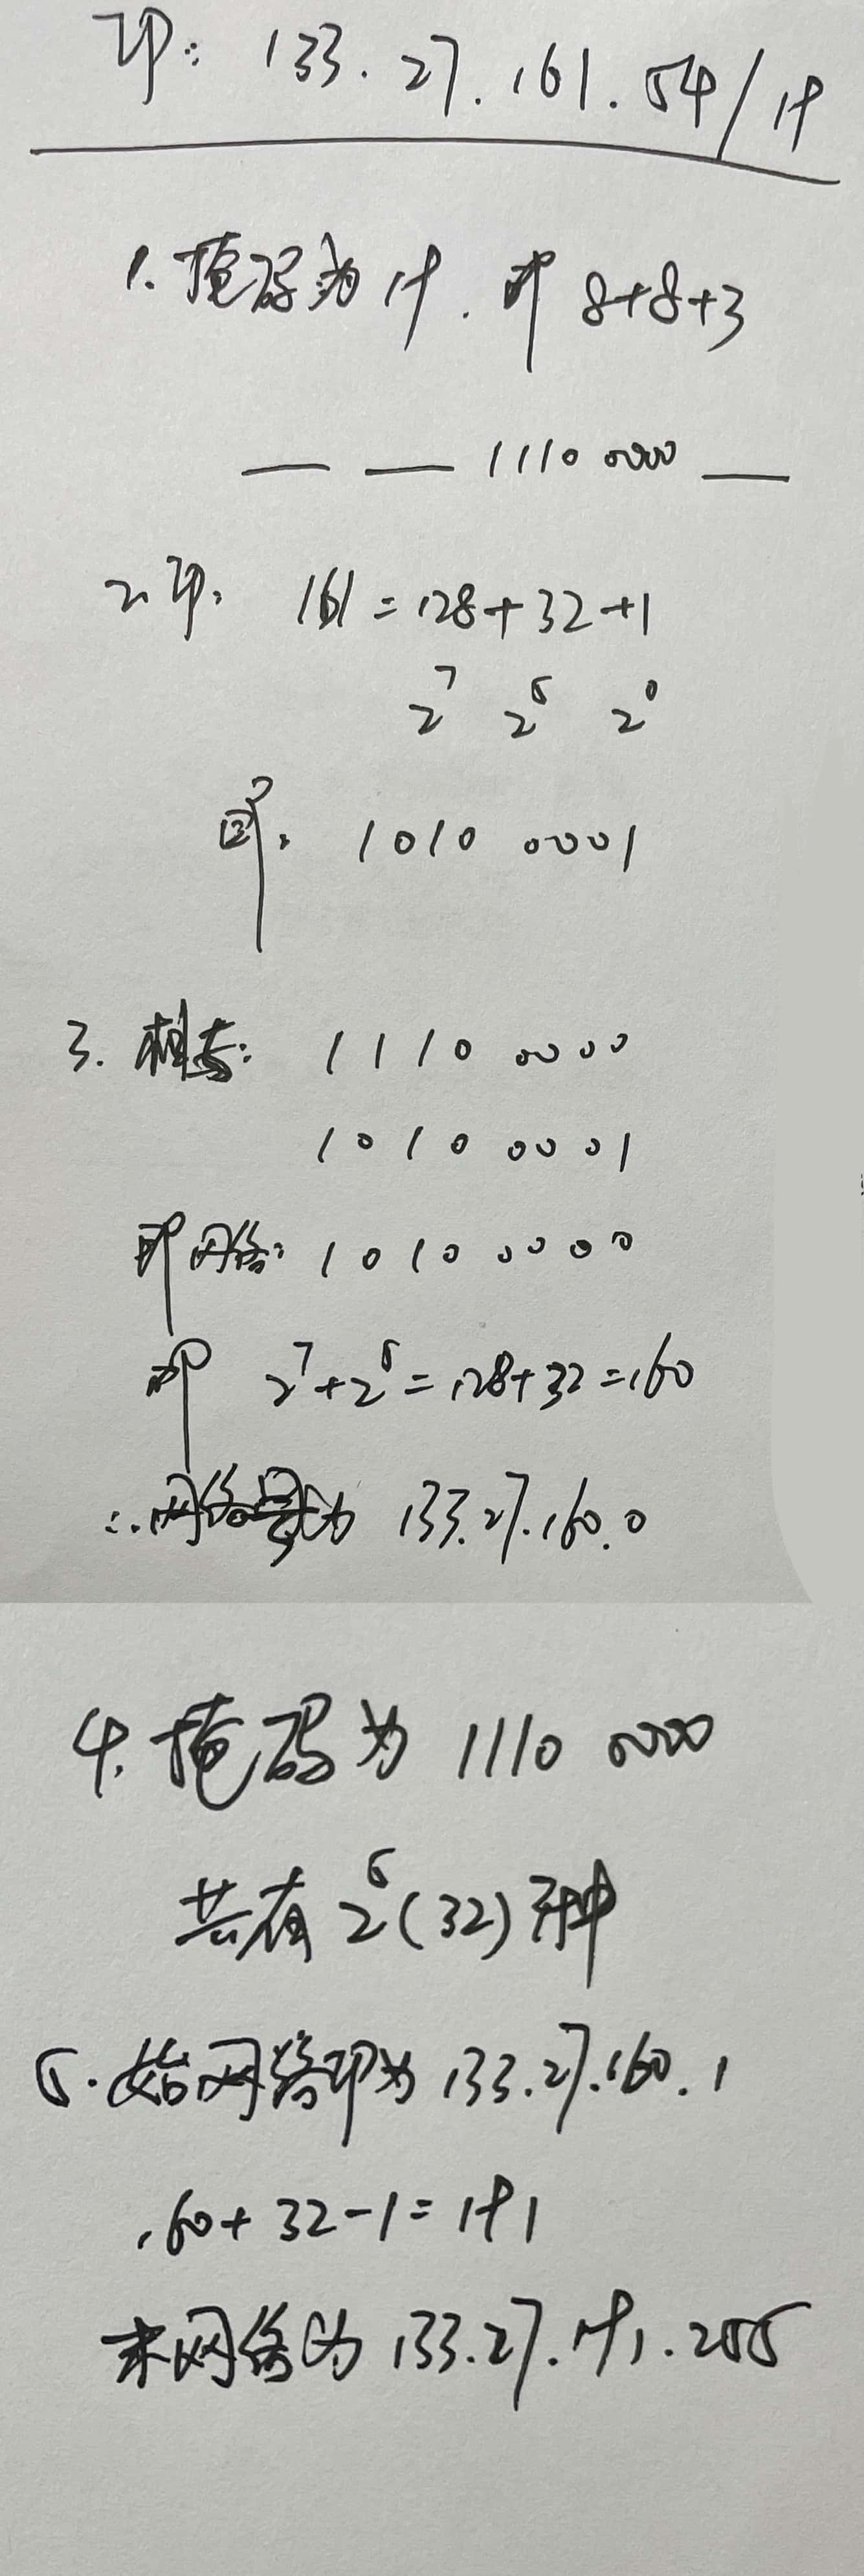 IP: 133.27.161.54/19
1. 掩码为 19. 即 8+8+3
— — 1110 0000 —
2. IP: 161=128+32+1
2⁷ 2⁵ 2⁰
即: 1010 0001
3. 相与: 1110 0000
1010 0001
即网络: 1010 0000
即 2⁷+2⁵=128+32=160
∴网络号为 133.27.160.0
4. 掩码为 1110 0000
共有 2⁵(32)种
5. 始网络IP为 133.27.160.1
160+32-1=191
末网络为 133.27.191.255